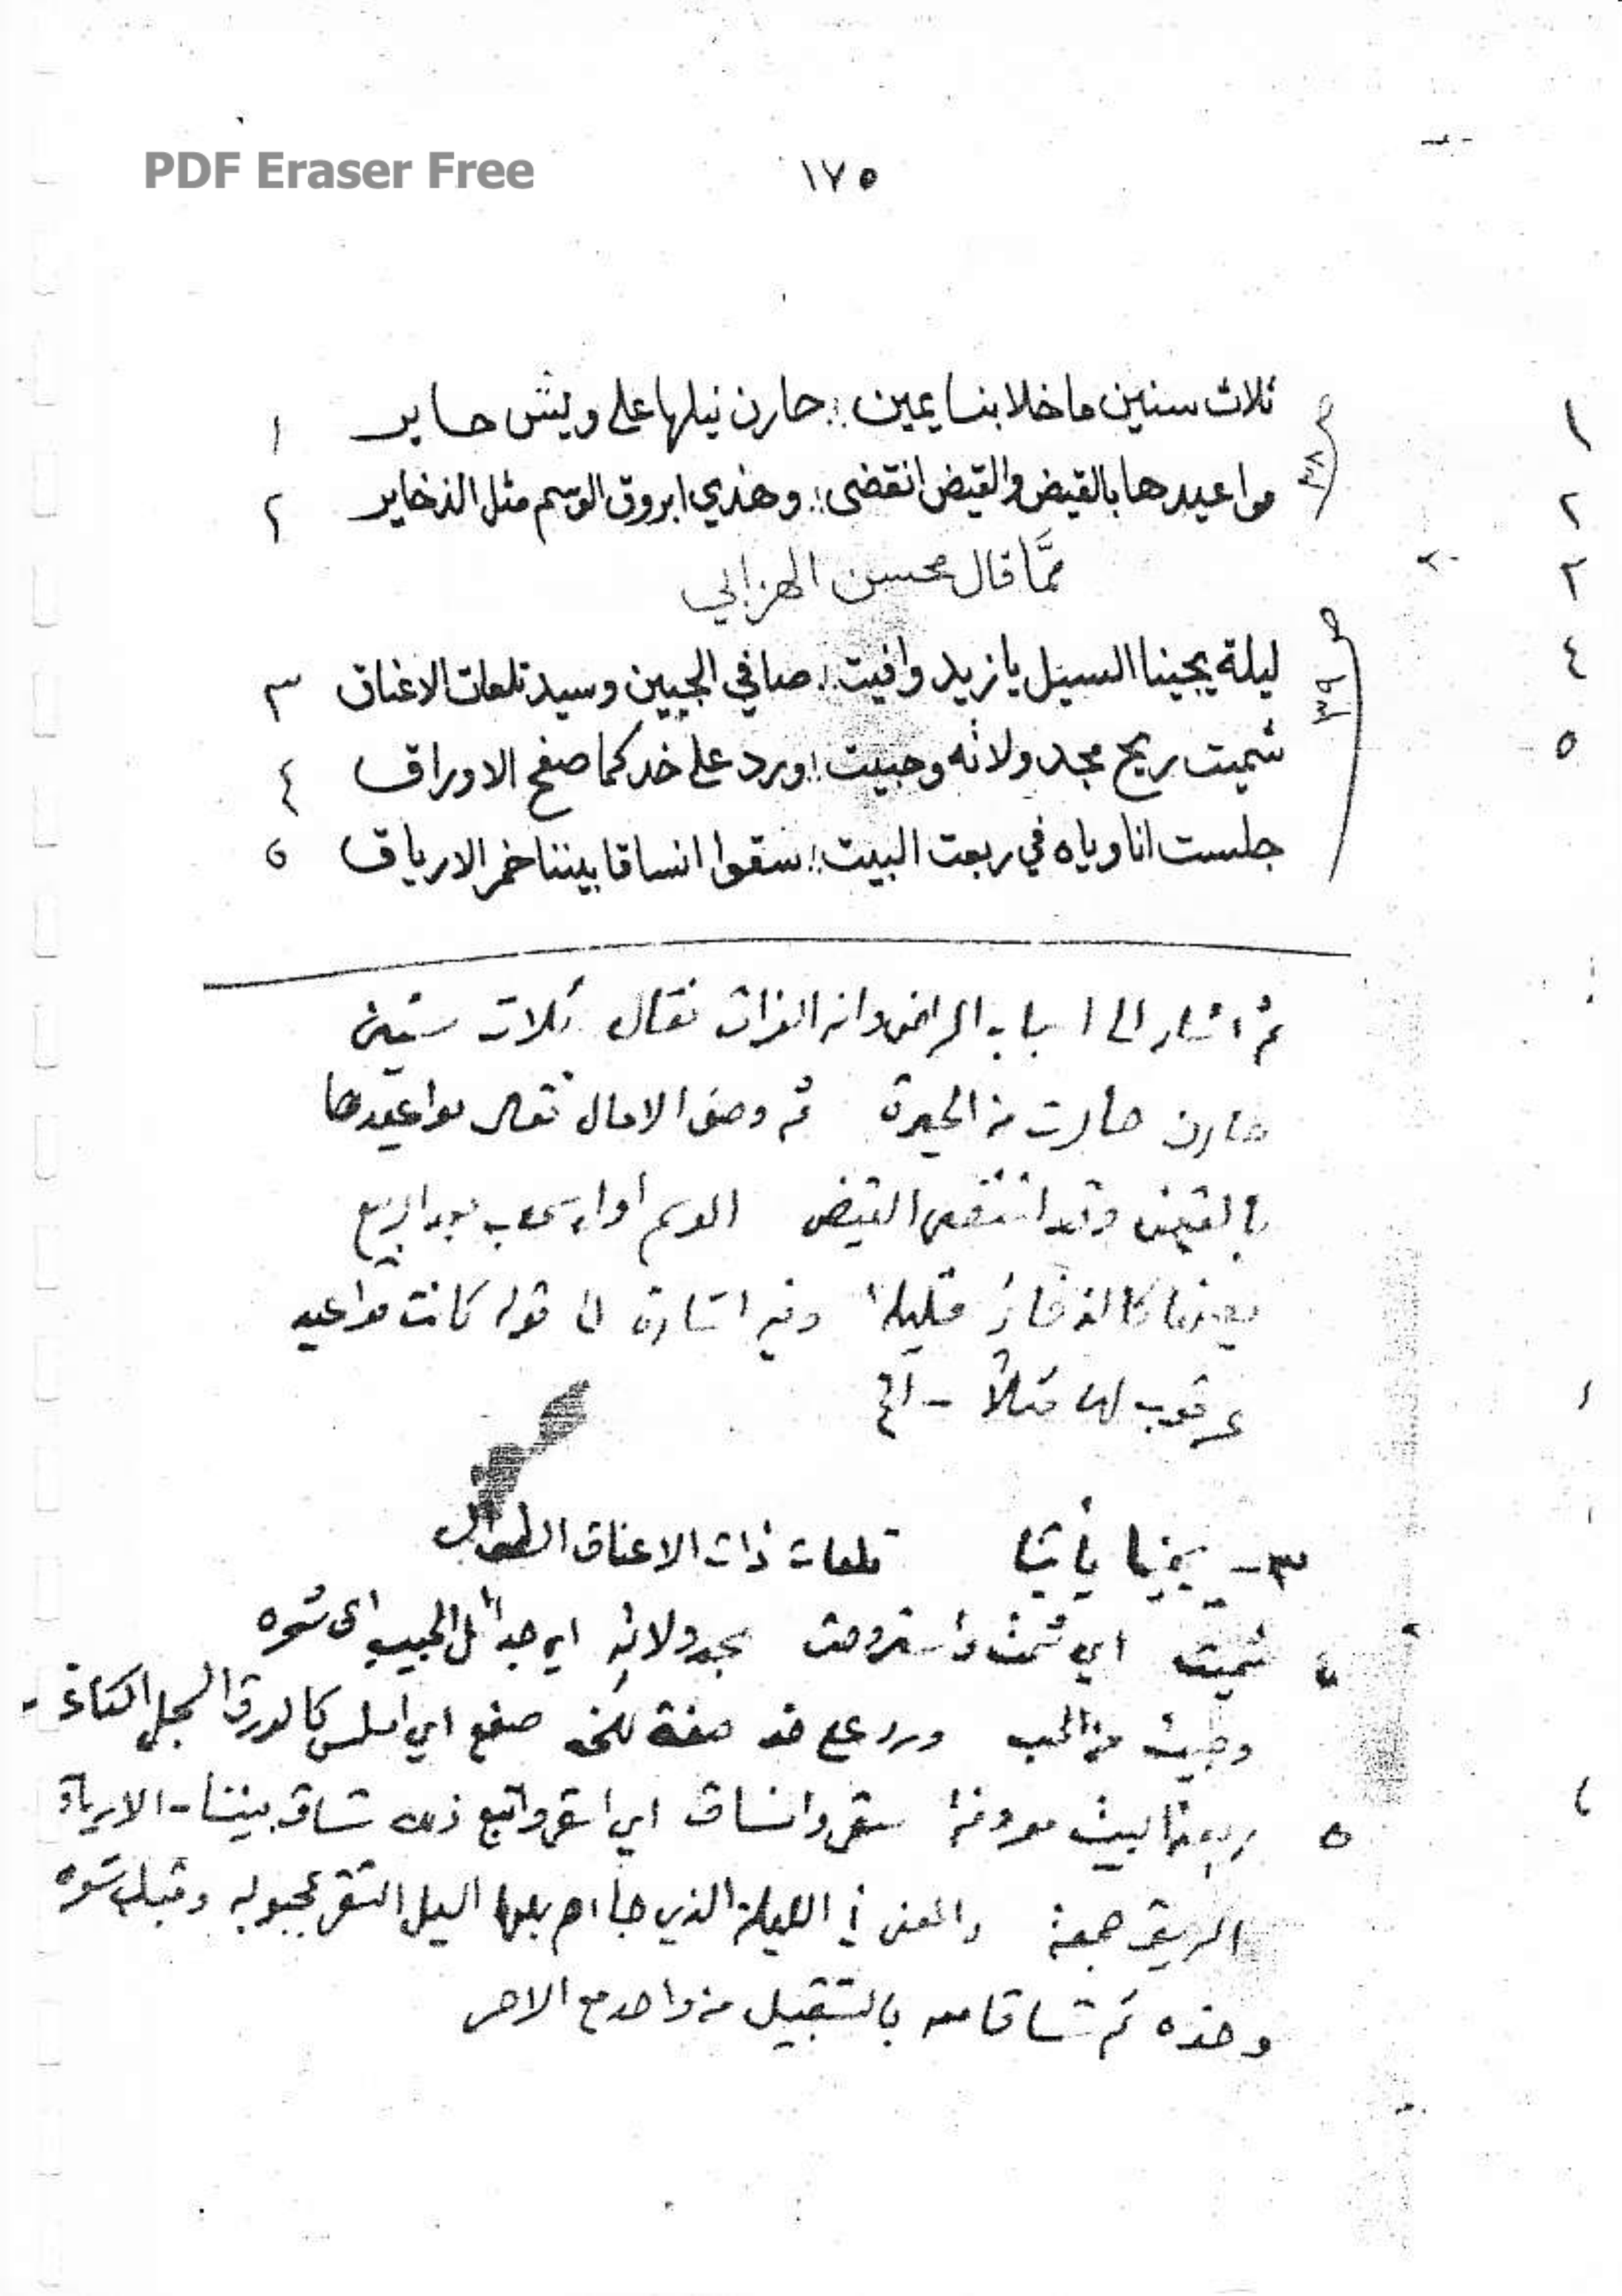 PDF Eraser Free
١٧٥
ثلاث سنين ما خلا بنا يمين :. حارن نيلها على ويش حاير ١
مواعيدها بالقيض والقيض انقضى :. وهذي ابروق الوسم مثل الذخاير ٢
ممَّا قال محسن الهزاني
ليلة يجينا السيل يا زيد وافيت :. صافي الجبين وسيد تلعات الاعناق ٣
شميت ريح مجدولاته وحبيت :. اورد على خد كما صفح الاوراق ٤
جلست انا وياه في ربعت البيت :. سقوا انساقا بيننا خمر الارياق ٥
ثم اشار الى اسباب فقال ثلاث سنين
حارن حارت من الحيرة ثم وصف الامال فقال مواعيدها
بالقيض وقد انقضى القيض الوسم
كالذخائر قليلة وفيه اشارة الى قوله كانت مواعيد
عرقوب لها مثلاً - الخ
٣- يجينا يأتينا تلعات ذات الاعناق الطوال
٤ شميت اي شممت واستروحت مجدولاته اي جدائل الحبيب اي شعره
وحبيت من الحب ورد على خد صفة للخد صفح اي املس كالورق
٥ ربعة البيت معروفة سقوا انساق اي بيننا - الارياق
الريق جمعه والمعنى في الليلة الذي جاءهم السيل التقى بمحبوبه وقبل شعره
وخده ثم تساقا معه بالتقبيل من واحد مع الاخر